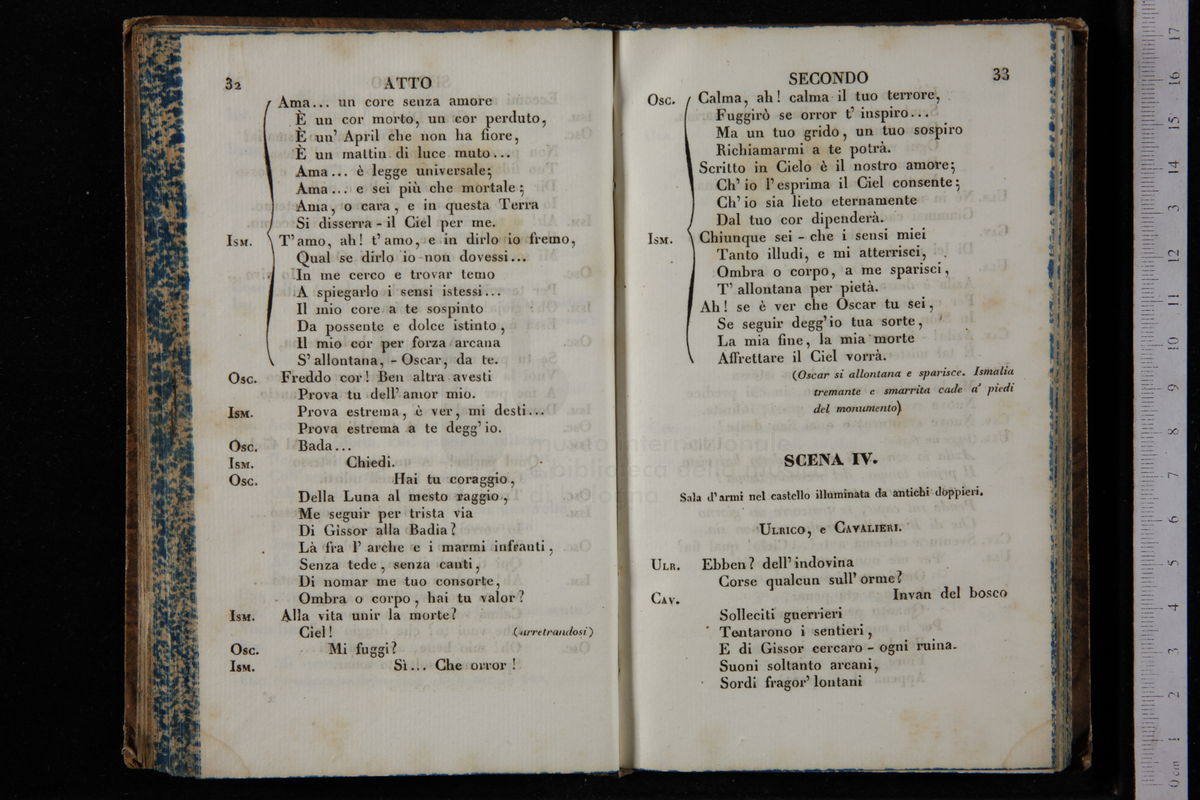 32 ATTO
Ama... un core senza amore
È un cor morto, un cor perduto,
È un' April che non ha fiore,
È un mattin di luce muto...
Ama... è legge universale;
Ama... e sei più che mortale;
Ama, o cara, e in questa Terra
Si disserra - il Ciel per me.
Ism. T'amo, ah! t'amo, e in dirlo io fremo,
Qual se dirlo io non dovessi...
In me cerco e trovar temo
A spiegarlo i sensi istessi...
Il mio core a te sospinto
Da possente e dolce istinto,
Il mio cor per forza arcana
S'allontana, - Oscar, da te.
Osc. Freddo cor! Ben altra avesti
Prova tu dell'amor mio.
Ism. Prova estrema, è ver, mi desti...
Prova estrema a te degg'io.
Osc. Bada...
Ism. Chiedi.
Osc. Hai tu coraggio,
Della Luna al mesto raggio,
Me seguir per trista via
Di Gissor alla Badia?
Là fra l'arche e i marmi infranti,
Senza tede, senza canti,
Di nomar me tuo consorte,
Ombra o corpo, hai tu valor?
Ism. Alla vita unir la morte?
Ciel! (arretrandosi)
Osc. Mi fuggi?
Ism. Sì... Che orror!
SECONDO 33
Osc. Calma, ah! calma il tuo terrore,
Fuggirò se orror t'inspiro...
Ma un tuo grido, un tuo sospiro
Richiamarmi a te potrà.
Scritto in Cielo è il nostro amore;
Ch'io l'esprima il Ciel consente;
Ch'io sia lieto eternamente
Dal tuo cor dipenderà.
Ism. Chiunque sei - che i sensi miei
Tanto illudi, e mi atterrisci,
Ombra o corpo, a me sparisci,
T'allontana per pietà.
Ah! se è ver che Oscar tu sei,
Se seguir degg'io tua sorte,
La mia fine, la mia morte
Affrettare il Ciel vorrà.
(Oscar si allontana e sparisce. Ismalia
tremante e smarrita cade a' piedi
del monumento)
SCENA IV.
Sala d'armi nel castello illuminata da antichi doppieri.
Ulrico, e Cavalieri.
Ulr. Ebben? dell'indovina
Corse qualcun sull'orme?
Cav. Invan del bosco
Solleciti guerrieri
Tentarono i sentieri,
E di Gissor cercaro - ogni ruina.
Suoni soltanto arcani,
Sordi fragor' lontani
museo internazionale
e biblioteca della musica
di bologna
17
16
15
14
13
12
11
10
9
8
7
6
5
4
3
2
1
0 cm